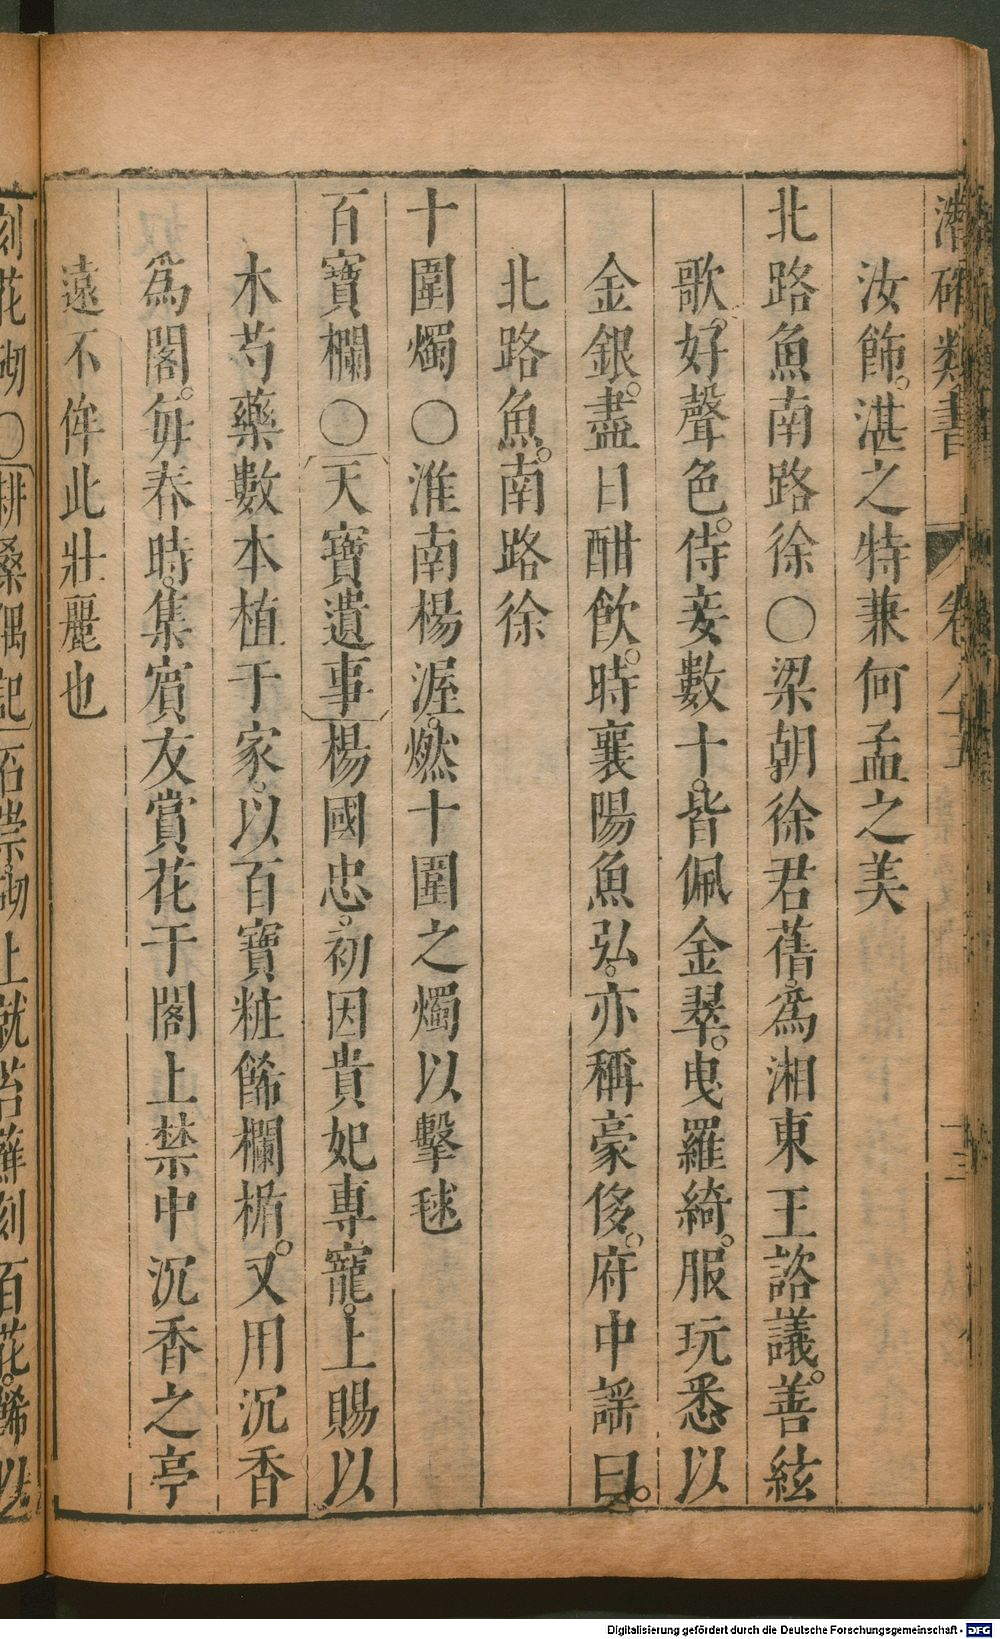 潛確類書 卷八十五 十三
汝飾。湛之特兼何孟之美
北路魚南路徐○梁朝徐君蒨。為湘東王諮議。善絃
歌。好聲色。侍妾數十。皆佩金翠。曳羅綺。服玩悉以
金銀。盡日酣飲。時襄陽魚弘。亦稱豪侈。府中謡曰。
北路魚。南路徐
十圍燭○淮南楊渥。燃十圍之燭以擊毬
百寶欄○天寶遺事楊國忠。初因貴妃專寵。上賜以
木芍藥數本植于家。以百寶粧餙欄楯。又用沉香
為閣。每春時。集賓友賞花于閣上禁中沉香之亭
遠不侔此壯麗也
刻花砌○耕桑偶記石崇。砌上就苔蘚刻百花。餙以
Digitalisierung gefördert durch die Deutsche Forschungsgemeinschaft - DFG